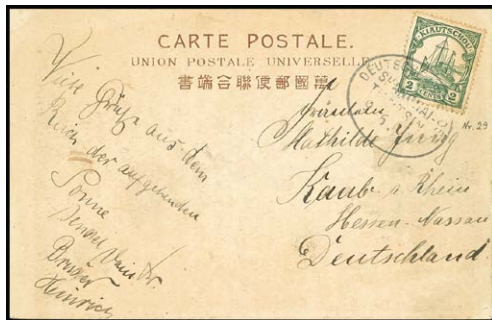 CARTE POSTALE.
UNION POSTALE UNIVERSELLE
書端合聯便郵國萬
KIAUTSCHOU
2 CENTS 2
DEUTSCHE
Nr. 29
Viele Grüße aus dem
Reich der aufgehenden
Sonne
Bruder
Heinrich
Fräulein
Mathilde Jung
Kaub a Rhein
Hessen-Nassau
Deutschland.